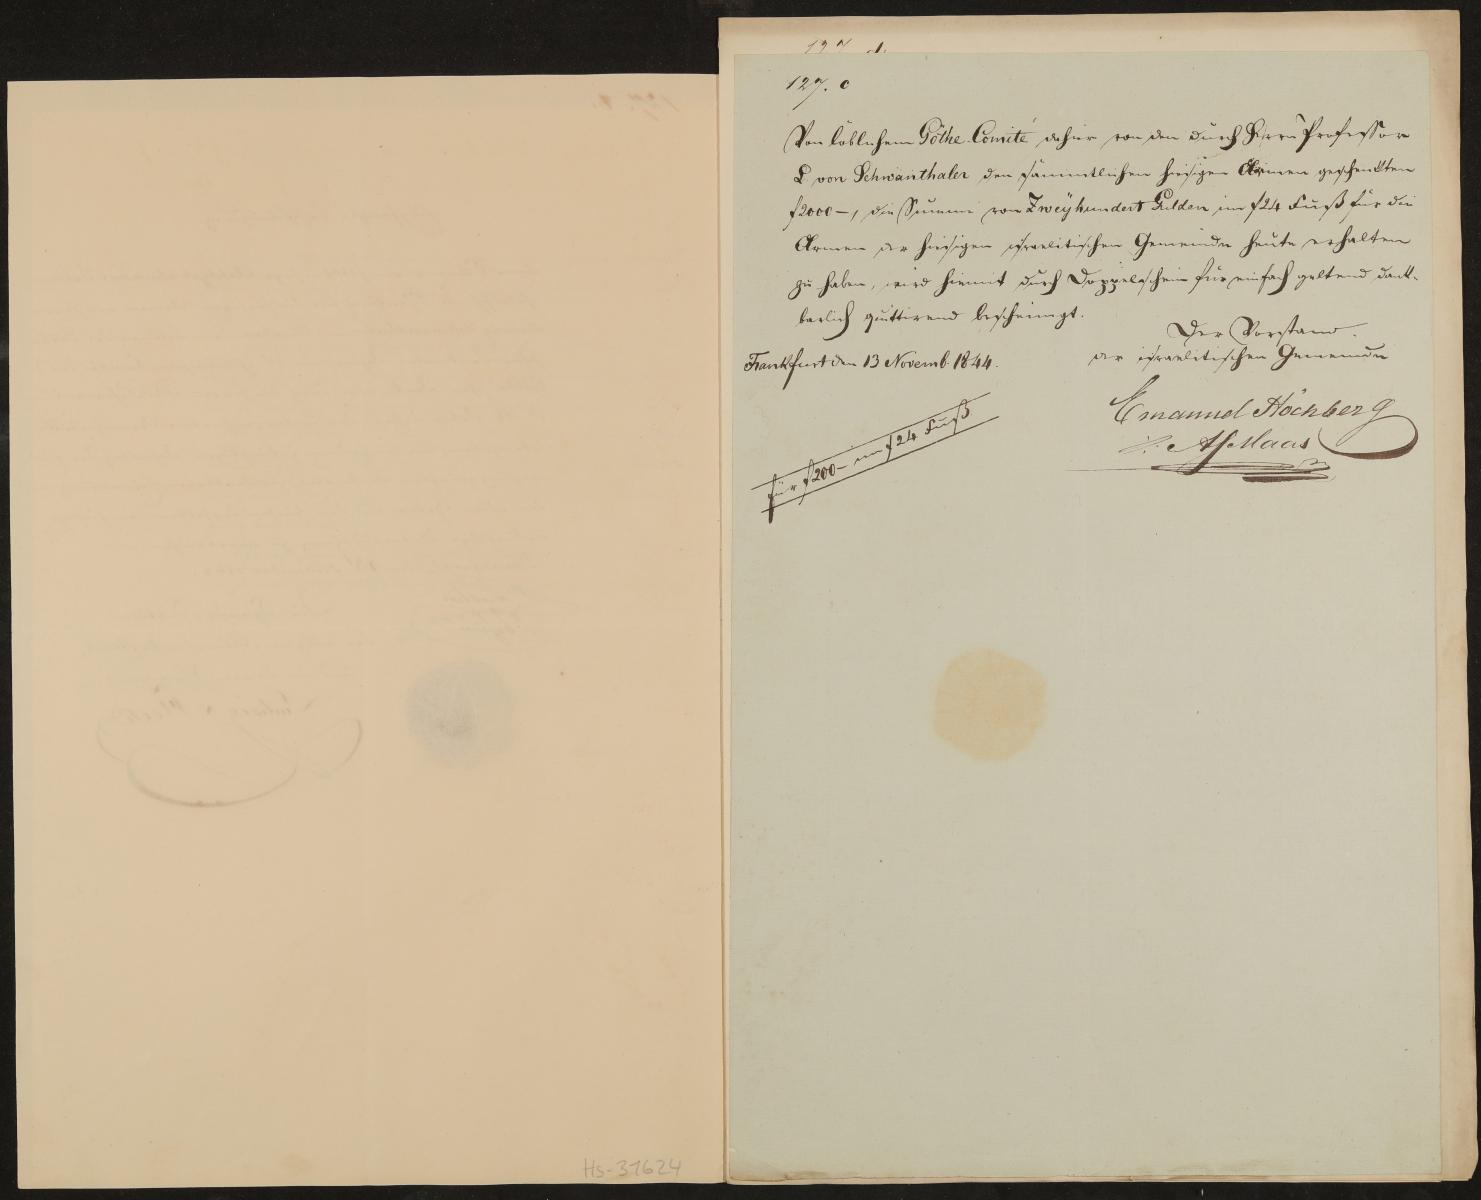 127. d.
127. c
Von löblichem Göthe-Comité dahier von den durch Herrn Professor
L. von Schwanthaler den sämmtlichen hiesigen Armen geschenkten
f 2000 –, die Summe von Zweyhundert Gulden im f 24 Fuß für die
Armen der hiesigen israelitischen Gemeinde heute erhalten
zu haben, wird hiemit durch Doppelschein für einfach geltend dank-
barlich quittirend bescheinigt.
Frankfurt den 13 Novemb. 1844.
Der Vorstand
der israelitischen Gemeinde
Emanuel Höchberg
Maas
für f 200 – im f 24 Fuß
Hs-31624